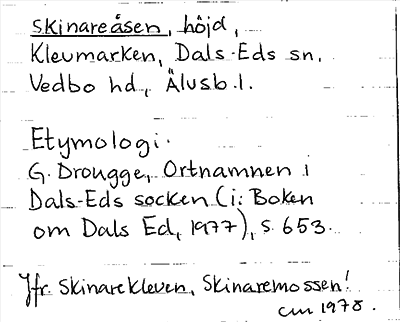 Skinareåsen, höjd,
Klevmarken, Dals-Eds sn.
Vedbo hd., Älvsb.l.
Etymologi.
G. Drougge, Ortnamnen i
Dals-Eds socken (i: Boken
om Dals Ed, 1977), s. 653.
Jfr Skinarekleven, Skinaremossen!
cm 1978.